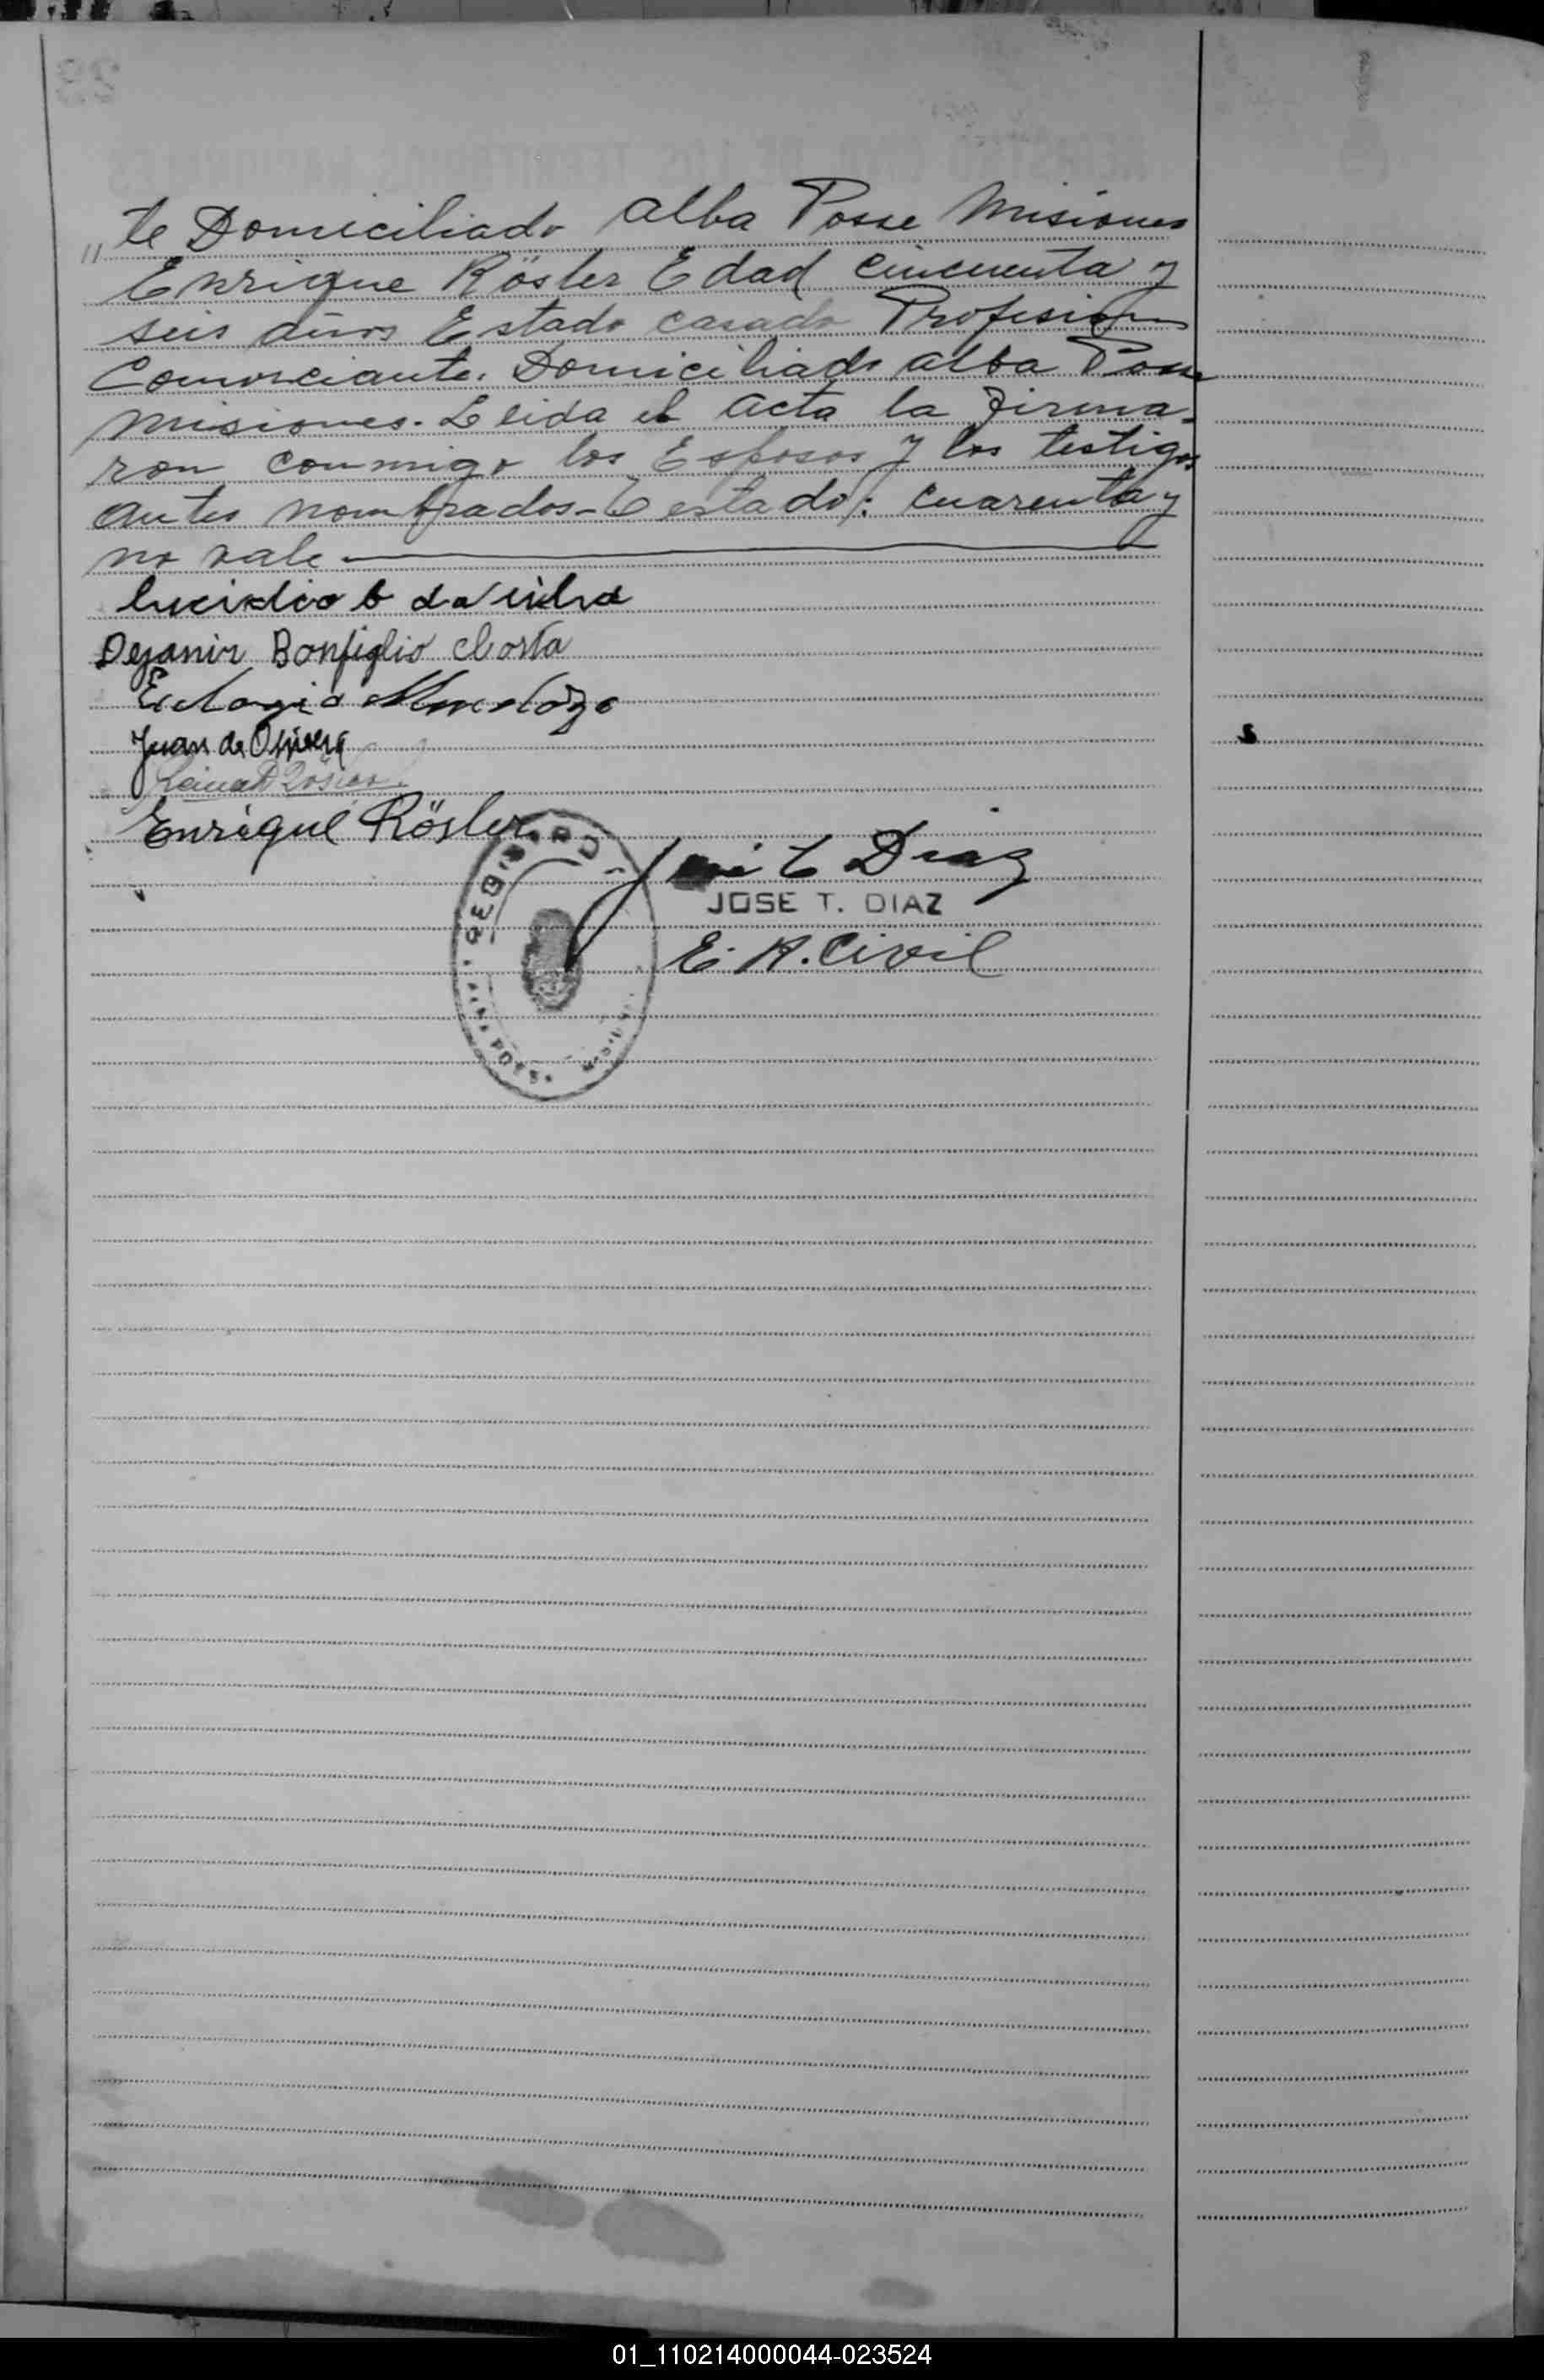 "te Domiciliado Alba Posse Misiones
Enrique Röster Edad cincuenta y
seis años Estado casado Profesion
Comerciante. Domiciliado Alba Posse
Misiones. Leida el Acta la firma-
ron conmigo los Esposos y los testigos
antes nombrados - Testado: cuarenta y
no vale
Dejanir Bonfiglio Costa
Eulogio Mendoza
Juan de Olivera
Enrique Röster
José T Diaz
JOSE T. DIAZ
E. R. Civil
01_110214000044-023524